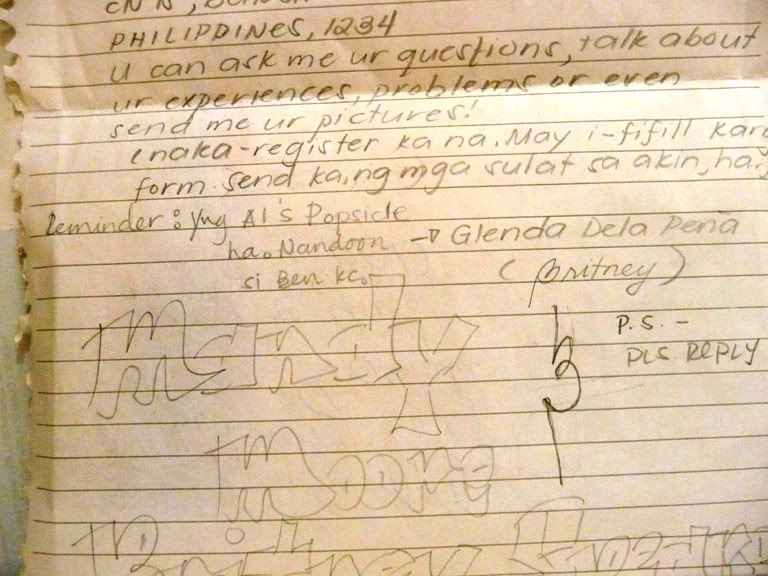 PHILIPPINES, 1234
U can ask me ur questions, talk about
ur experiences, problems or even
send me ur pictures!
naka-register ka na. May i-fifill kang
form. send ka, ng mga sulat sa akin, ha.
Reminder: Yung Al's Popsicle
ha. Nandoon → Glenda Dela Peña
si Ben kc. (Britney)
P.S. -
PLS. REPLY
Mandy
Moore
Britney